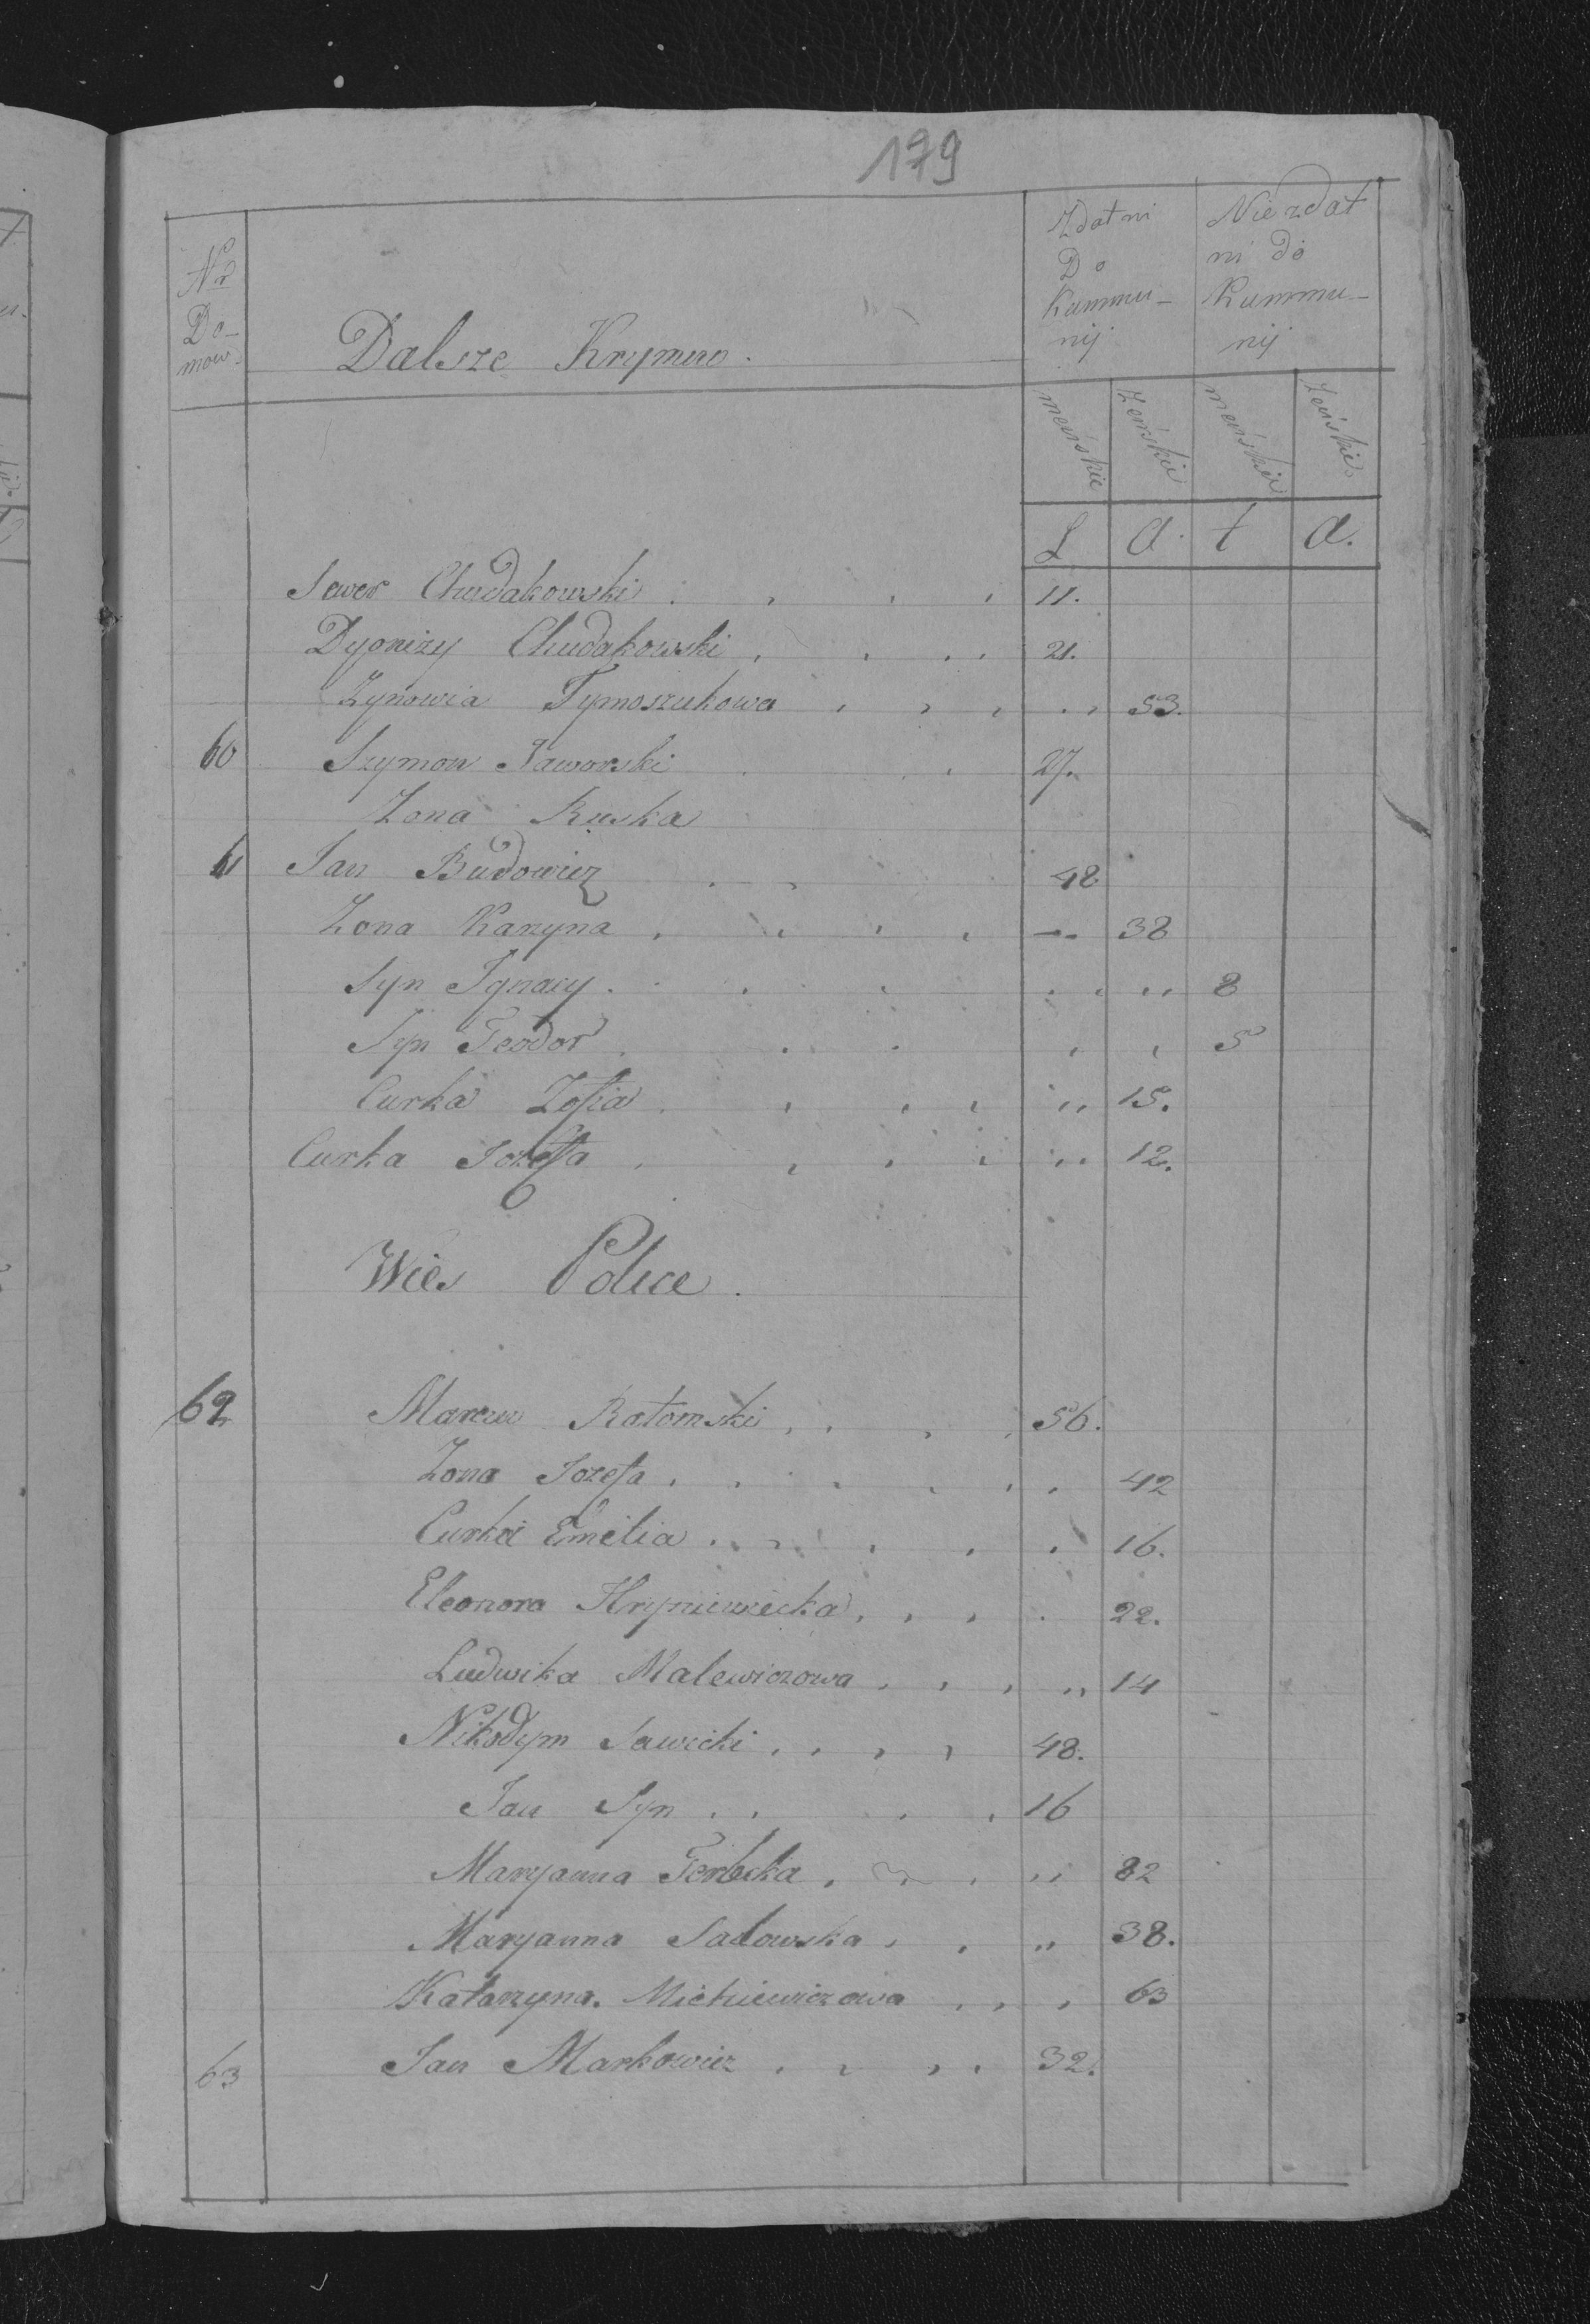 179
Nr Do- mow.
Dalsze Krymno.
Zdatni Do Kummu- nij
Niezdat ni do Kummu- nij
męnskie żenskie męnskie żenskie
L a. t a.
Sewer Chudakowski 11.
Dyonizy Chudakowski 21.
Zynowia Tymoszukowa 53.
60 Szymon Jaworski 27.
Zona Ruska
61 Jan Budowicz 48
Zona Karzyna 38
Syn Ignacy 8
Syn Teodor 5
Curka Zofia 15.
Curka Jozefa 12.
Wies Police.
62 Marcin Ratomski 56.
Zona Jozefa 42
Curka Emilia 16.
Eleonora Hryniewiecka 22.
Ludwika Malewiczowa 14
Nikodym Sawicki 48.
Jan Syn 16
Maryanna Terlecka 82
Maryanna Sadowska 38.
Katarzyna. Mickiewiczowa 63
63 Jan Markowicz 32.